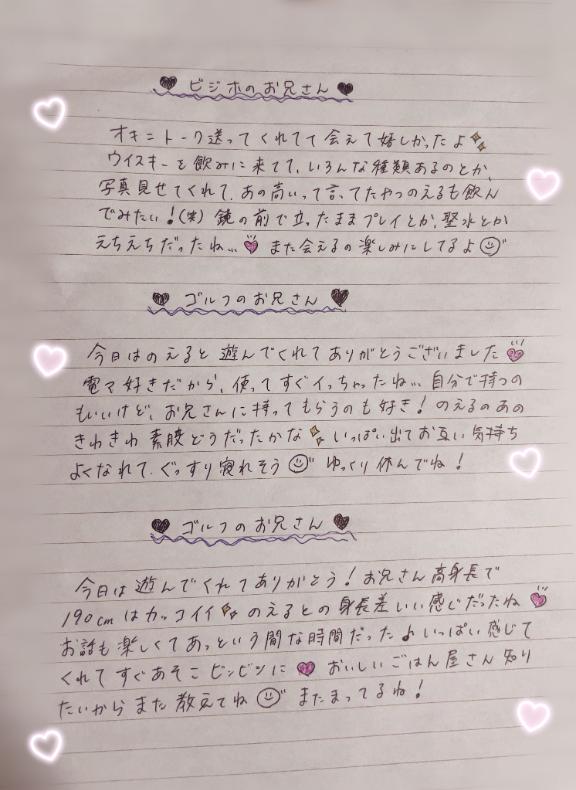 ビジホのお兄さん
オキニトーク送ってくれてて会えて嬉しかったよ
ウイスキーを飲みに来てて、いろんな種類あるのとか、
写真見せてくれて、あの高いって言ってたやつのえるも飲ん
でみたい！(笑) 鏡の前で立ったままプレイとか、聖水とか
えちえちだったね… また会えるの楽しみにしてるよ
ゴルフのお兄さん
今日はのえると遊んでくれてありがとうございました
電マ好きだから、使ってすぐイっちゃったね… 自分で持つの
もいいけど、お兄さんに持ってもらうのも好き！のえるのあの
きわきわ素股どうだったかな いっぱい出てお互い気持ち
よくなれて、ぐっすり寝れそう ゆっくり休んでね！
ゴルフのお兄さん
今日は遊んでくれてありがとう！お兄さん高身長で
190cmはカッコイイ のえるとの身長差いい感じだったね
お話も楽しくてあっという間な時間だった♪いっぱい感じて
くれてすぐあそこビンビンに おいしいごはん屋さん知り
たいからまた教えてね またまってるね！